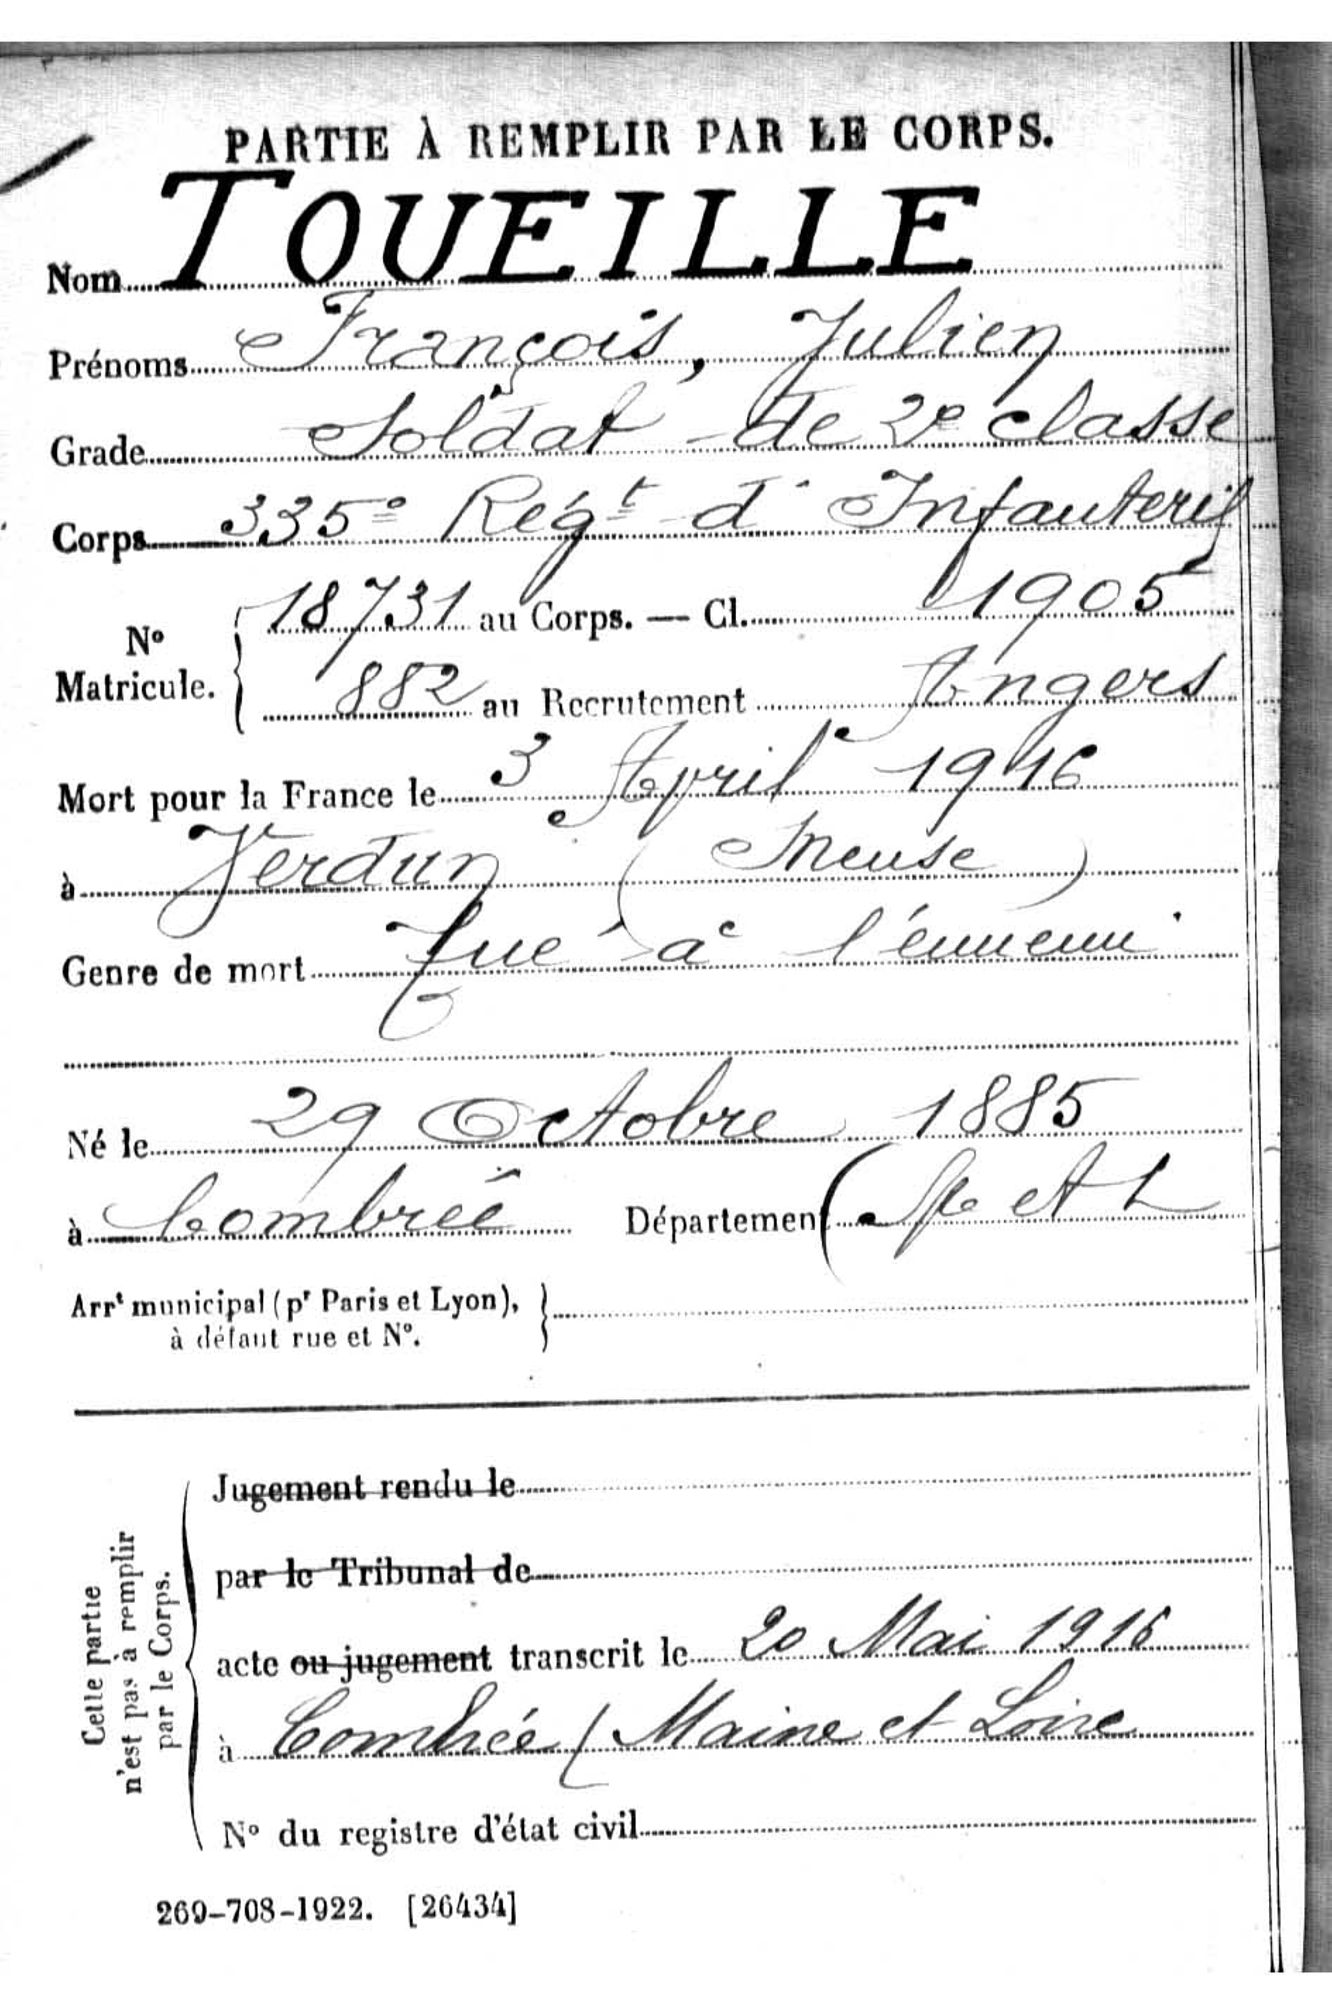 PARTIE À REMPLIR PAR LE CORPS.
Nom TOUEILLE
Prénoms François, Julien
Grade Soldat de 2e classe
Corps 335e Régt d'Infanterie
No Matricule. { 18731 au Corps. — Cl. 1905
882 au Recrutement Angers
Mort pour la France le 3 Avril 1916
à Verdun (Meuse)
Genre de mort Tué à l'ennemi
Né le 29 Octobre 1885
à Combrée Département (M et L
Arrt municipal (pr Paris et Lyon), }
à défaut rue et No.
Cette partie
n'est pas à remplir
par le Corps.
Jugement rendu le
par le Tribunal de
acte ou jugement transcrit le 20 Mai 1916
à Combrée (Maine et Loire
No du registre d'état civil
269-708-1922. [26434]